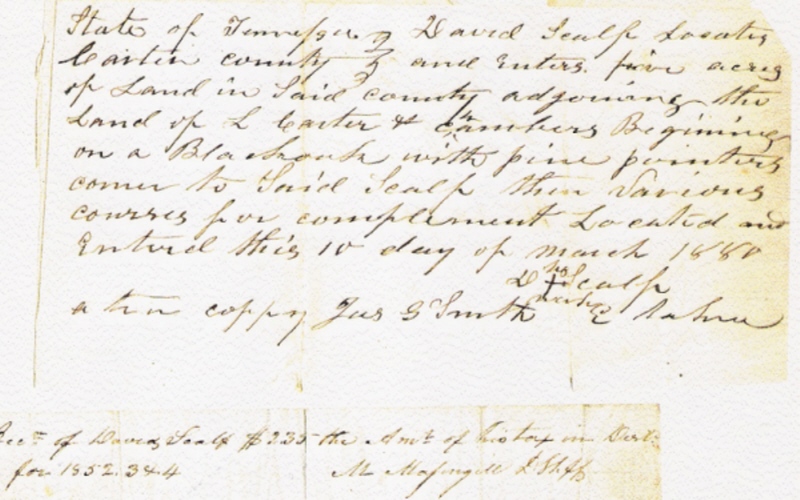 State of Tennessee } David Scalf Locates
Carter county } and Enters five acres
of Land in Said county adjoining the
Land of L Carter & Cambers Begining
on a Blackoak with pine pointers
corner to Said Scalf then various
courses for complement Located and
Entered this 10 day of march 1880
his
D + Scalf
mark
a true coppy Jas G Smith E taker
Rec.d of David Scalf $2.35 the Amt of his tax in Dist.
for 1852.3&4 M Masingill D Shff